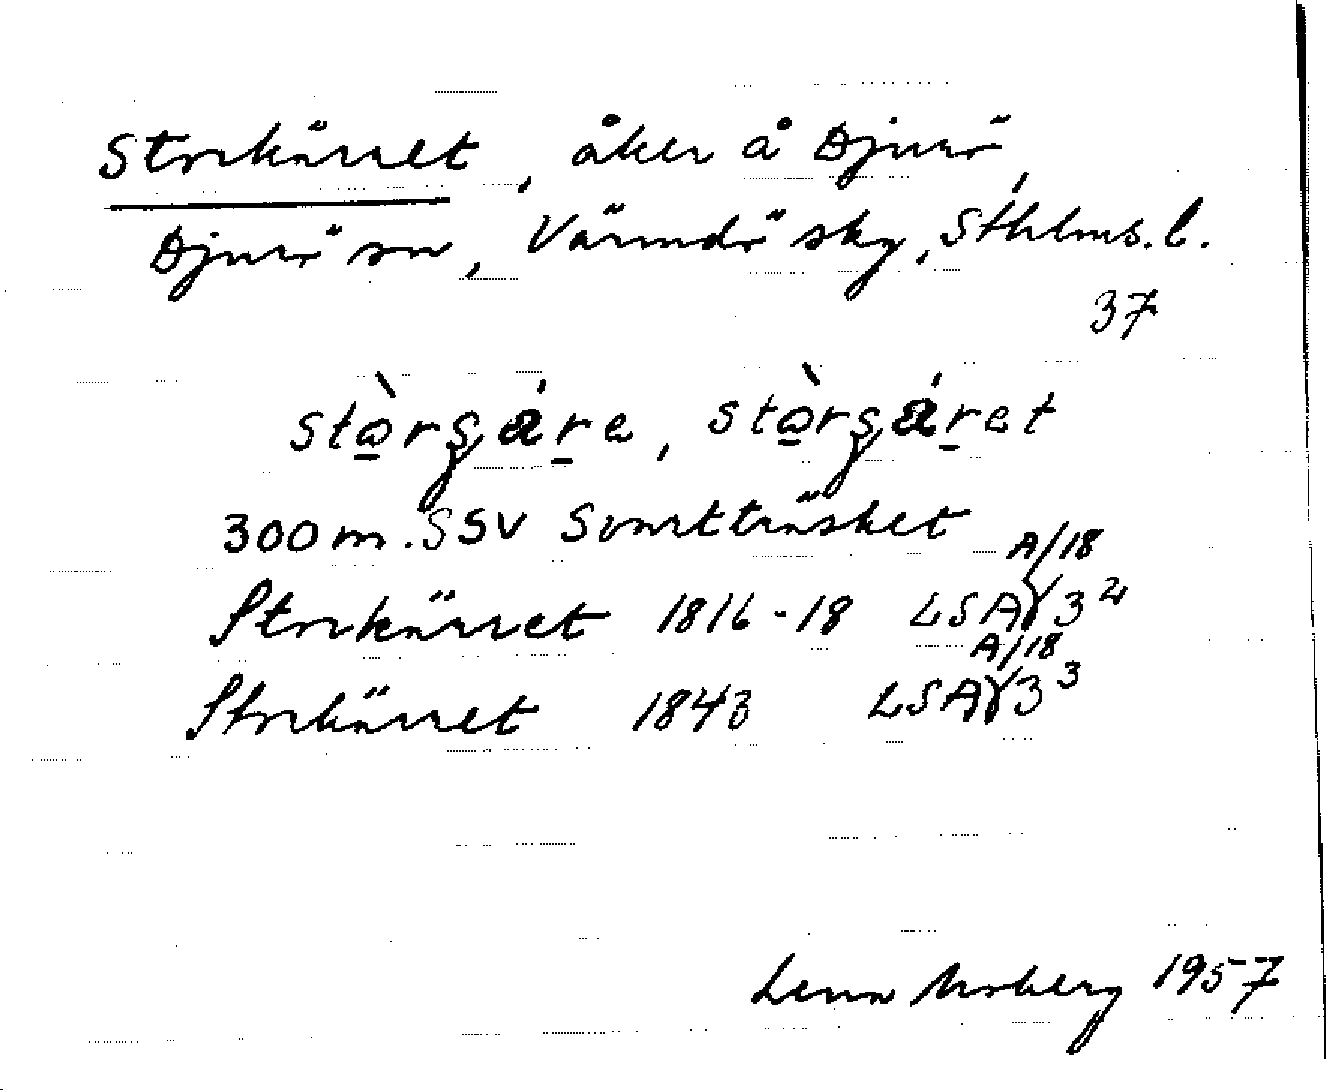 Storkärret, åker å Djurö,
Djurö sn, Värmdö skg, Sthlms. l.
37
300 m. SSV Svartträsket
Storkärret 1816-18 LSA A/18 3²
Storkärret 1843 LSA A/18 3³
Lena Moberg 1957